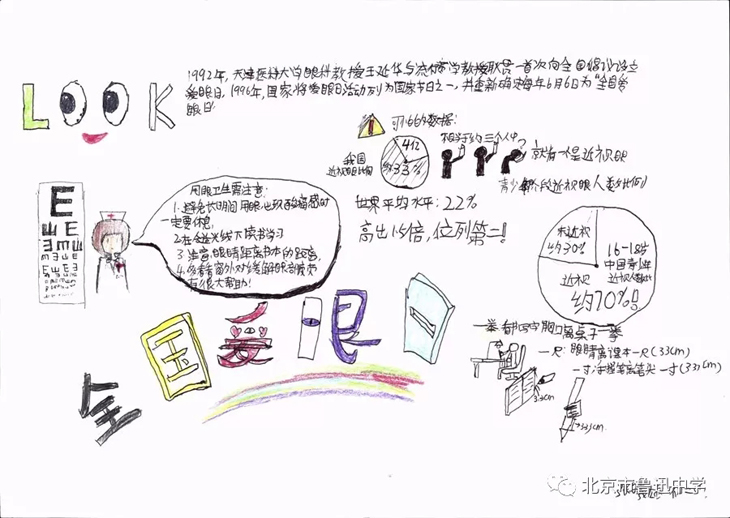 LOOK
1992年,天津医科大学眼科教授王延华与流行病学教授耿贯一首次向全国倡议设立
爱眼日,1996年,国家将爱眼日活动列为国家节日之一,并重新确定每年6月6日为“全国爱
眼日”
可怕的数据:
我国
近视眼比例
4亿
约33%
相当于约三个人中
就有一个是近视眼
世界平均水平:22%
高出1.5倍,位列第二!
用眼卫生需注意:
1.避免长时间用眼,出现酸痛感时
一定要休息
2.在合适光线下读书学习
3.注意眼睛距离书本的距离
4.多看看窗外对缓解眼部疲劳
有很大帮助!
E
未近视
约30%
近视
约70%!
16-18岁
中国青少年
全国爱眼日
一拳:胸口离桌子一拳
一尺:眼睛离课本一尺(33cm)
一寸:手指离笔尖一寸(3.3cm)
3.3cm
北京市鲁迅中学